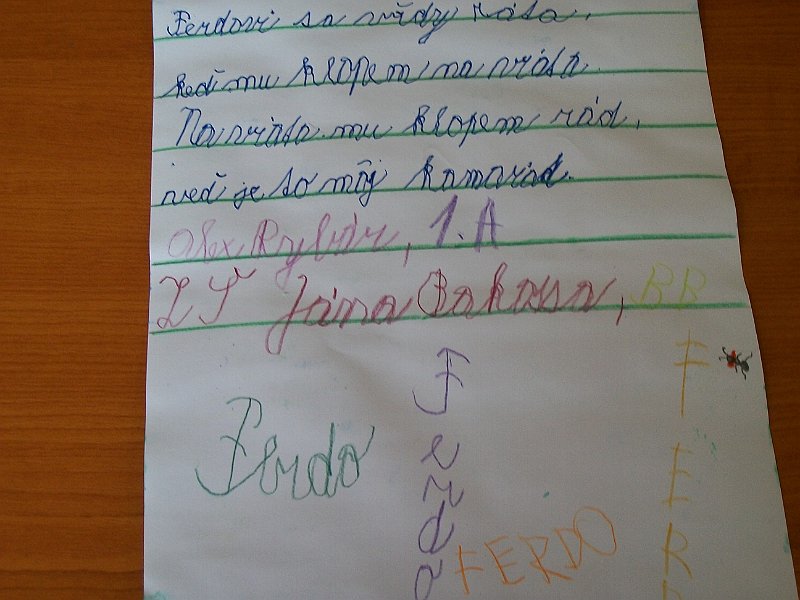 Ferdovi sa vždy ráta,
keď mu klopem na vráta.
Na vráta mu klopem rád,
veď je to môj kamarád.
Alex Rybár, 1.A
ZŠ Jána Bakossa, BB
Ferdo
Ferdo
FERDO
FERD